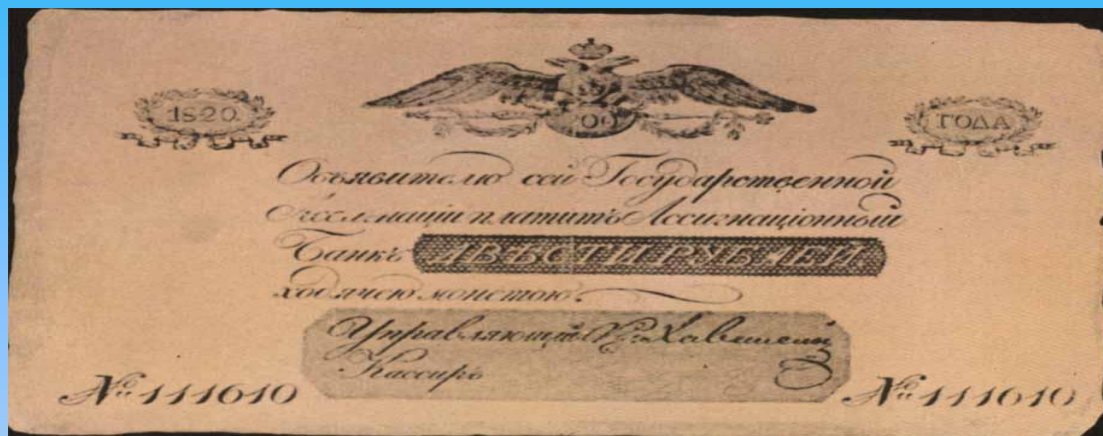 1820.
ГОДА
200
Объявителю сей Государственной
Ассигнаціи платитъ Ассигнаціонный
Банкъ ДВѢСТИ РУБЛЕЙ
ходячею монетою.
Управляющій
Кассиръ
№ 111610
№ 111610